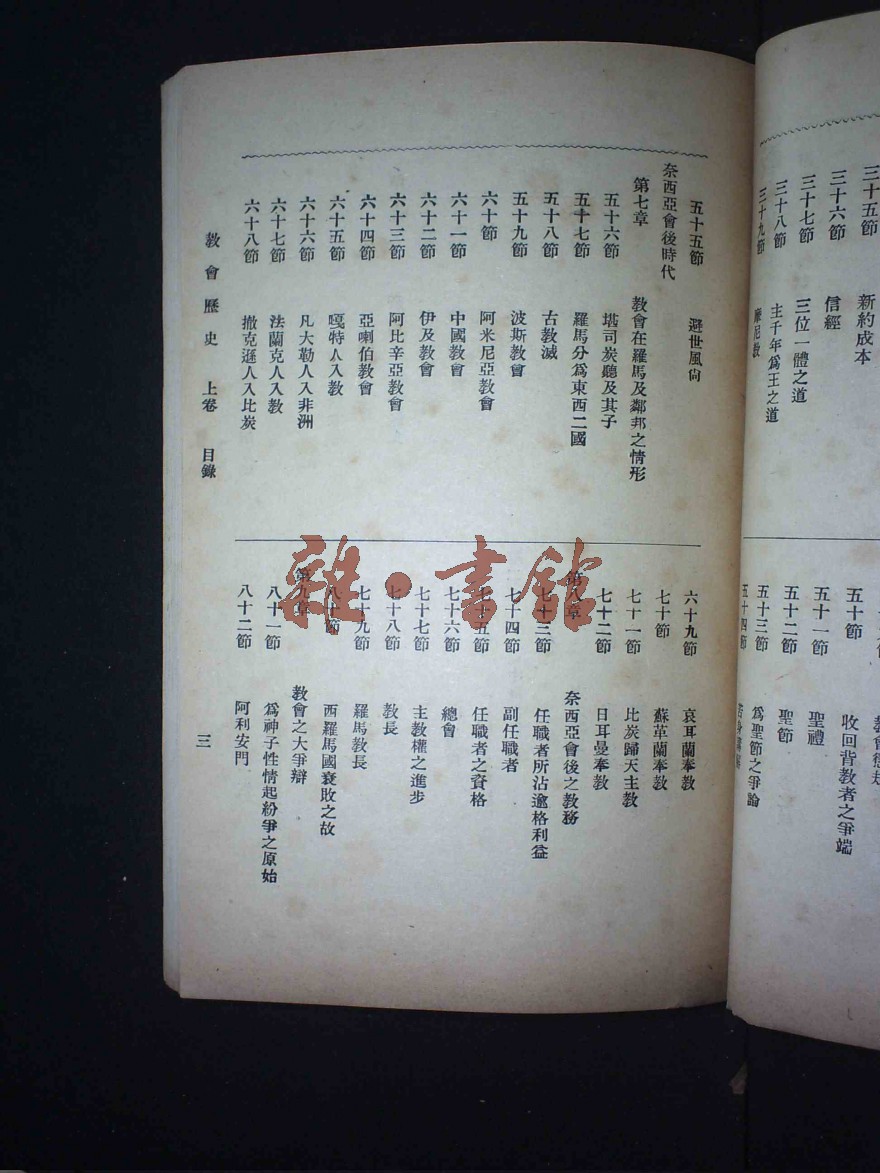 三十五節　新約成本
三十六節　信經
三十七節　三位一體之道
三十八節　主千年爲王之道
三十九節　摩尼教
五十節　收回背教者之爭端
五十一節　聖禮
五十二節　聖節
五十三節　爲聖節之爭論
五十四節
五十五節　避世風向
奈西亞會後時代
第七章　教會在羅馬及鄰邦之情形
五十六節　堪司炭聽及其子
五十七節　羅馬分爲東西二國
五十八節　古教滅
五十九節　波斯教會
六十節　阿米尼亞教會
六十一節　中國教會
六十二節　伊及教會
六十三節　阿比辛亞教會
六十四節　亞喇伯教會
六十五節　嘎特人入教
六十六節　凡大勒人入非洲
六十七節　法蘭克人入教
六十八節　撒克遜人入比炭
六十九節　哀耳蘭奉教
七十節　蘇革蘭奉教
七十一節　比炭歸天主教
七十二節　日耳曼奉教
第八章　奈西亞會後之教務
七十三節　任職者所沾逾格利益
七十四節　副任職者
七十五節　任職者之資格
七十六節　總會
七十七節　主教權之進步
七十八節　教長
七十九節　羅馬教長
八十節　西羅馬國衰敗之故
第九章　教會之大爭辯
八十一節　爲神子性情起紛爭之原始
八十二節　阿利安門
教會歷史　上卷　目錄
三
雜·書館